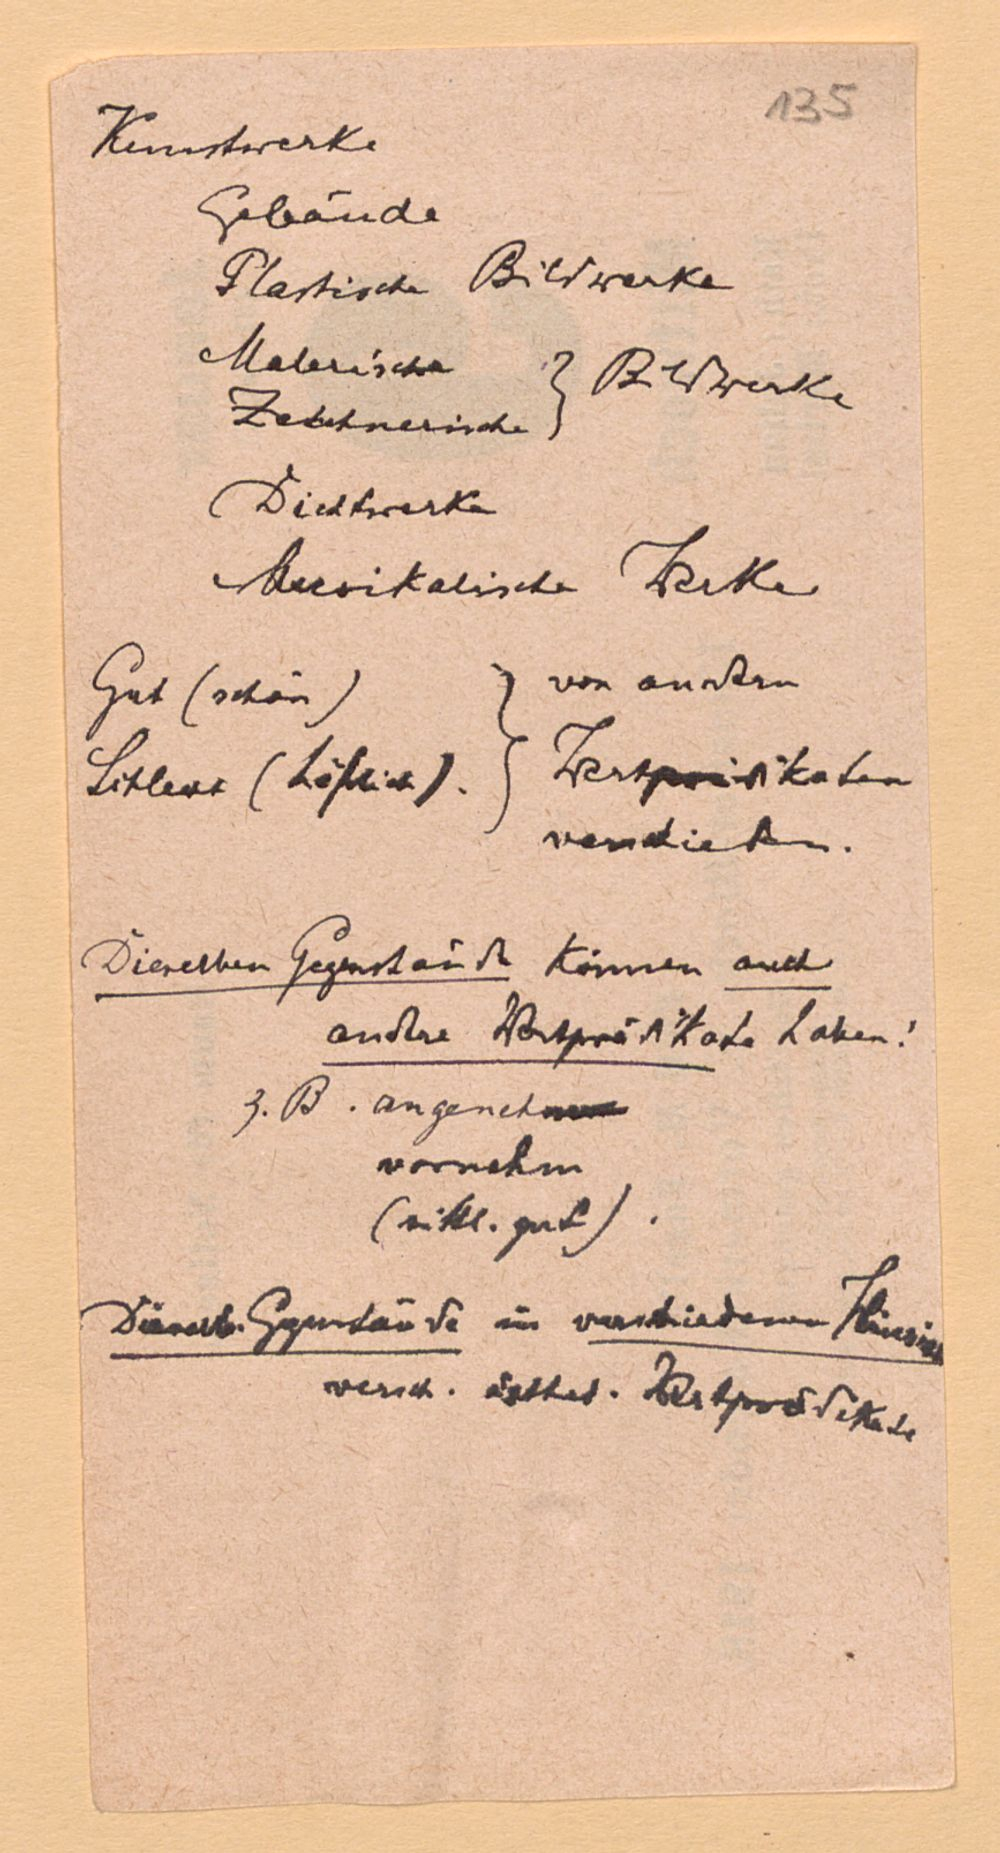 135
Kunstwerke
Gebäude
Plastische Bildwerke
Malerische
Zeichnerische } Bildwerke
Dichtwerke
Musikalische Werke
Gut (schön) } von andern
Schlecht (häßlich). Wertprädikaten
verschieden.
Dieselben Gegenstände können auch
andere Wertprädikate haben!
z. B. angenehm
vornehm
(sittl. gut).
Dieselb. Gegenstände in verschiedenen Hinsicht
versch. ästhet. Wertprädikate